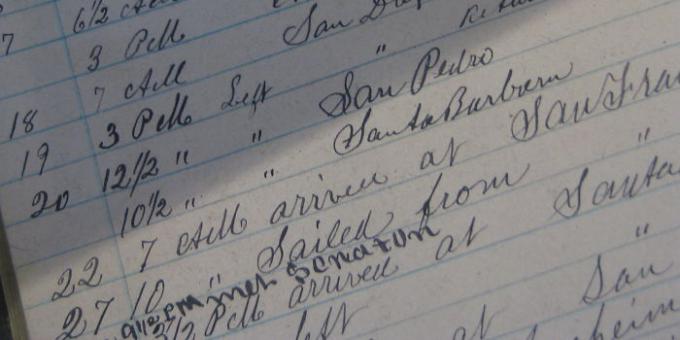 6 1/2 AM
7 3 PM San Die
7 AM "
18 3 PM Left San Pedro
19 12 1/2 " " Santa Barbara
20 10 1/2 " "
7 AM arrived at San Fran
22 10 " Sailed from "
9 1/2 pm met Senator
27 3 1/2 PM arrived at Santa
left "
at San